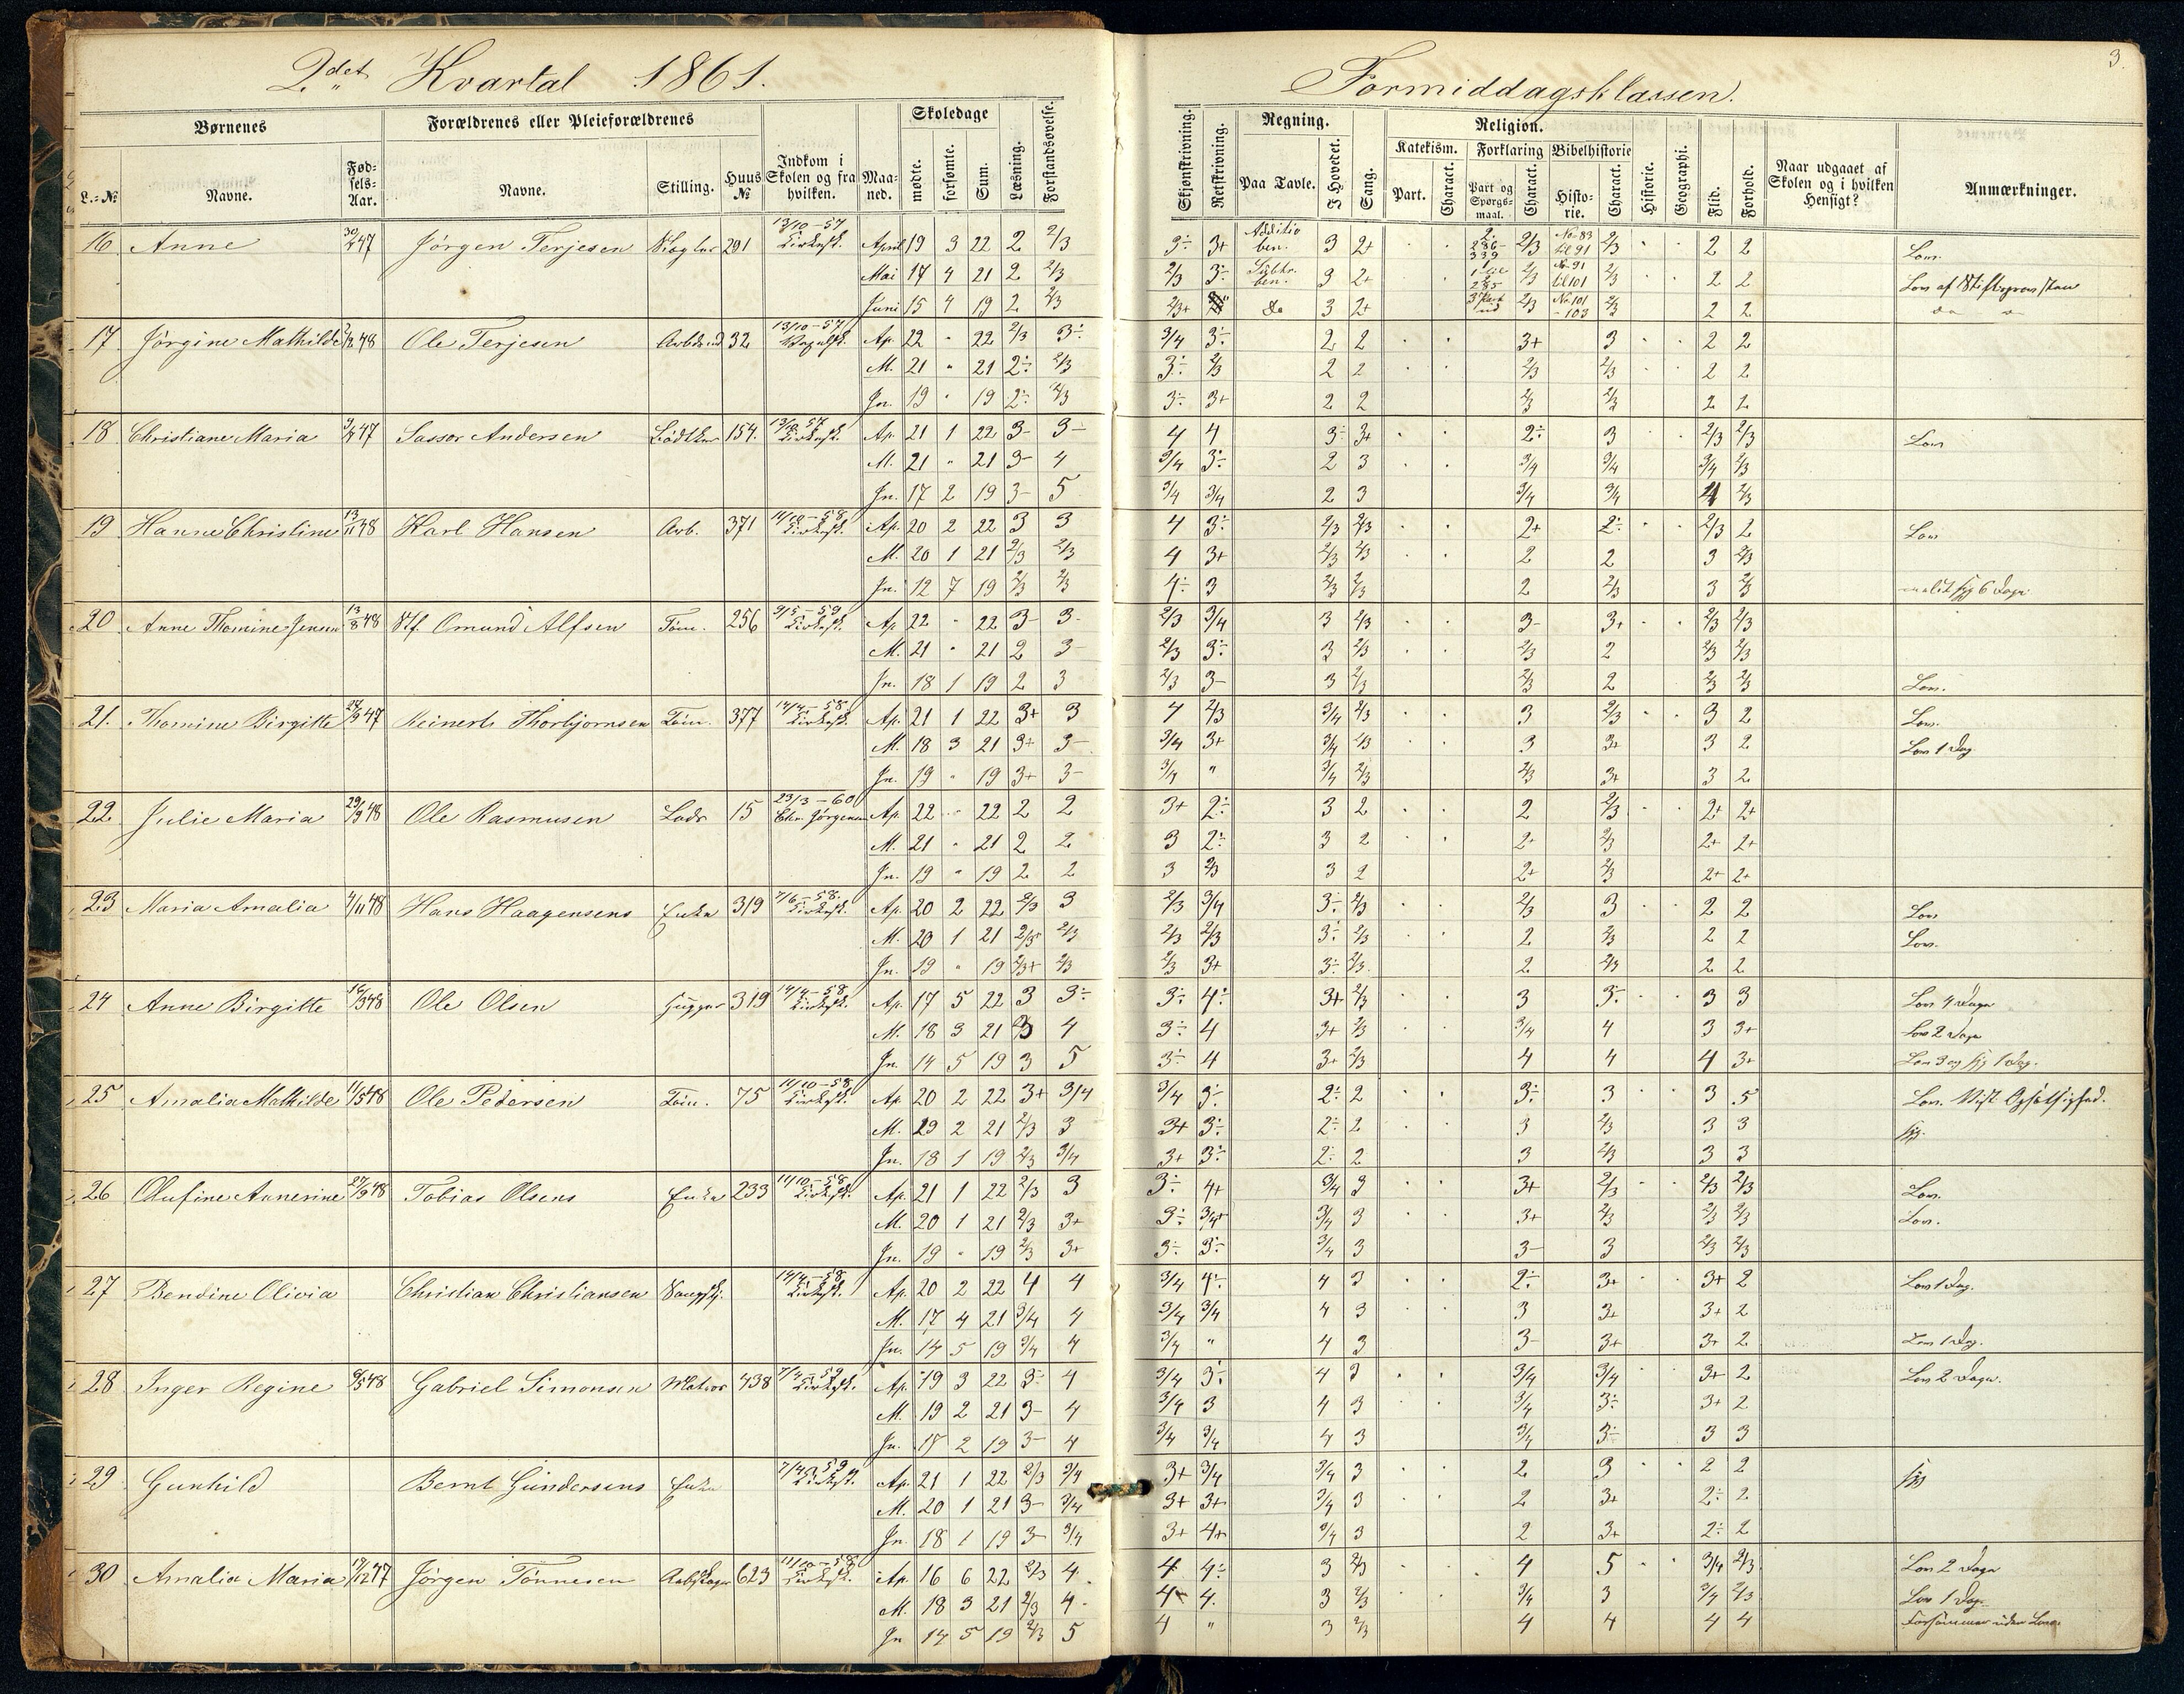 2det Kvartal 1861.
Formiddagsklassen.
3.
Børnenes
Forældrenes eller Pleieforældrenes
Skoledage
L.-No
Navne.
Fød-sels-Aar.
Navne.
Stilling.
Huus No
Indkom i Skolen og fra hvilken.
Maa-ned.
mødte.
forsømte.
Sum.
Læsning.
Forstandsøvelse.
Skjønskrivning.
Retskrivning.
Regning.
Paa Tavle.
I Hovedet.
Sang.
Religion.
Katekism.
Part.
Charact.
Forklaring
Part og Spørgs-maal.
Charact.
Bibelhistorie
Histo-rie.
Charact.
Historie.
Geographi.
Flid.
Forhold.
Naar udgaaet af Skolen og i hvilken Hensigt?
Anmærkninger.
16 Anne 47 Jörgen Terjesen 291 13/10-57 April 19 3 22 2 2/3 3÷ 3+ Additio ben. 3 2+ 2/3 No 83 til 91 2/3 2 2 Lov.
Mai 17 4 21 2 2/3 2/3 3÷ Subtr. ben. 3 2+ 2/3 No 91 til 101 2/3 2 2
Juni 15 4 19 2 2/3 2/3+ do 3 2+ 2/3 No 101 - 103 2/3 2 2
17 Jörgine Mathilde 48 Ole Terjesen 32 13/10-57 Ap. 22 " 22 2/3 3÷ 3/4 3÷ 2 2 3+ 3 2 2
M. 21 " 21 2÷ 2/3 3÷ 2/3 2 2 2/3 2/3 2 2
Jn. 19 " 19 2÷ 2/3 3÷ 3+ 2 2 2/3 2/3 2 2
18 Christiane Maria 47 Sassor Andersen 154. 13/10 57 Ap. 21 1 22 3- 3- 4 4 3÷ 3+ 2÷ 3 2/3 2/3 Lov
M. 21 " 21 3- 4 3/4 3÷ 2 3 3/4 3/4 3/4 2/3
Jn. 17 2 19 3- 5 3/4 3/4 2 3 3/4 3/4 4 2/3
19 Hanne Christine 13/11 48 Karl Hansen Arb. 371 11/10-58 Ap. 20 2 22 3 3 4 3÷ 2/3 2/3 2+ 2÷ 2/3 2 Lov
M. 20 1 21 2/3 2/3 4 3+ 2/3 2/3 2 2 3 2/3
Jn. 12 7 19 2/3 2/3 4÷ 3 2/3 2/3 2 2/3 3 2/3
20 Anne Thomine Jensen 13/8 48 Stf. Omund Alfsen Töm. 256 9/5-59 Ap. 22 " 22 3- 3- 2/3 3/4 3 2/3 3- 3+ 2/3 2/3
M. 21 " 21 2 3- 2/3 3÷ 3 2/3 2/3 2 2/3 2/3
Jn. 18 1 19 2 3 2/3 3- 3 2/3 2/3 2 2/3 2/3 Lov.
21. Thomine Birgitte 47 Reinert Thorbjornsen Töm. 377 14/4-58 Ap. 21 1 22 3+ 3 4 2/3 3/4 2/3 3 2/3 3 2 Lov.
M. 18 3 21 3+ 3- 3/4 3+ 3/4 2/3 3 3+ 3 2 Lov 1 Dag
Jn. 19 " 19 3+ 3- 3/4 " 3/4 2/3 2/3 3+ 3 2
22 Julie Maria 48 Ole Rasmusen Lods 15 23/3-60 Chr. Jörgensen Ap. 22 22 2 2 3+ 2÷ 3 2 2 2/3 2+ 2+
M. 21 " 21 2 2 3 2÷ 3 2 2+ 2/3 2+ 2+
Jn. 19 " 19 2 2 3 2/3 3 2 2+ 2/3 2+ 2+
23 Maria Amalia 48 Hans Haagensens Enke 319 7/6-58. Ap. 20 2 22 2/3 3 2/3 3/4 3÷ 2/3 2/3 3 2 2 Lov
M. 20 1 21 2/3 2/3 2/3 2/3 3÷ 2/3 2 2/3 2 2 Lov.
Jn. 19 " 19 2/3+ 2/3 2/3 3+ 3÷ 2/3 2 2/3 2 2
24 Anne Birgitte 48 Ole Olsen 319 14/4-58 Ap. 17 5 22 3 3÷ 3÷ 4÷ 3+ 2/3 3 3÷ 3 3 Lov 4 Dage
M. 18 3 21 3 4 3÷ 4 3+ 2/3 3/4 4 3 3+ Lov 2 Dage
Jn. 14 5 19 3 5 3÷ 4 3+ 2/3 4 4 4 3+
25 Amalia Mathilde 11/5 48 Ole Pedersen Töm. 75 11/10-58 Ap. 20 2 22 3+ 3/4 3/4 3÷ 2÷ 2 3÷ 3 3 5
M. 29 2 21 2/3 3 3+ 3÷ 2÷ 2 3 2/3 3 3
Jn. 18 1 19 2/3 3/4 3+ 3÷ 2÷ 2 3 2/3 3 3
26 Olufine Annerine 27/9 48 Tobias Olsens Enke 233 11/10-58 Ap. 21 1 22 2/3 3 3÷ 4+ 3/4 3 3+ 2/3 2/3 2/3 Lov.
M. 20 1 21 2/3 3+ 3÷ 3/4+ 3/4 3 3+ 2/3 2/3 2/3 Lov.
Jn. 19 " 19 2/3 3+ 3÷ 3÷ 3/4 3 3- 3 2/3 2/3
27 Bendine Olivia Christian Christiansen 14/4-58 Ap. 20 2 22 4 4 3/4 4÷ 4 3 2÷ 3+ 3+ 2 Lov 1 Dag.
M. 17 4 21 3/4 4 3/4 3/4 4 3 3 3+ 3+ 2
Jn. 14 5 19 3/4 4 3/4 " 4 3 3- 3+ 3+ 2 Lov 1 Dag.
28 Inger Regine 48 Gabriel Simonsen Matros 438 7/4-59 Ap. 19 3 22 3÷ 4 3/4 3÷ 4 3 3/4 3/4 3+ 2 Lov 2 Dage.
M. 19 2 21 3- 4 3/4 3 4 3 3/4 3÷ 3+ 2
Jn. 17 2 19 3- 4 3/4 3/4 4 3 3/4 3÷ 3 3
29 Gunhild Bernt Gundersens Enke 7/4-59 Ap. 21 1 22 2/3 3/4 3+ 3/4 3/4 3 2 3 2 2
M. 20 1 21 3- 3/4 3+ 3+ 3/4 3 2 3+ 2÷ 2
Jn. 18 1 19 3- 3/4 3+ 4+ 3/4 3 2 3+ 2÷ 2
30 Amalia Maria 47 Jörgen Tönnesen 623 11/10-58 Ap. 16 6 22 2/3 4 4 4÷ 3 2/3 4 5 3/4 2/3 Lov 2 Dage
M. 18 3 21 2/3 4- 4 4. 3 2/3 3/4 3 3/4 2/3 Lov 1 Dag
Jn 14 5 19 2/3 5 4 " 3 2/3 4 4 4 4 Forsömmer uden Lov.